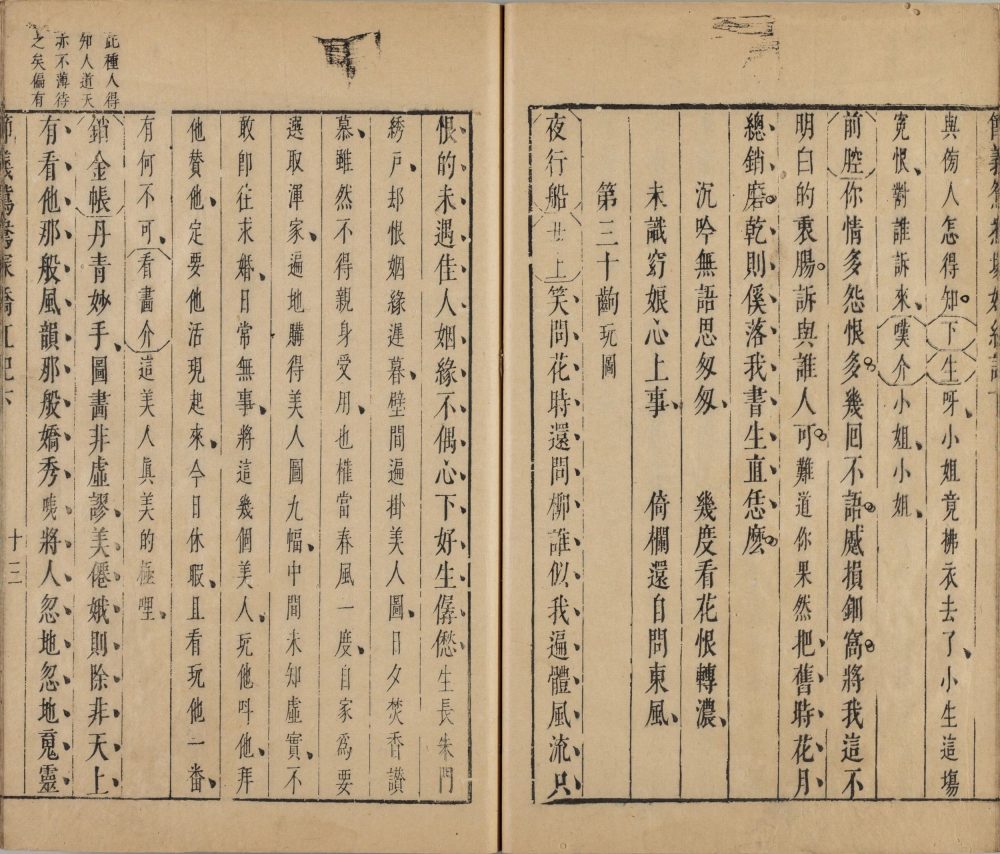 與傍人怎得知下生呀小姐竟拂衣去了小生這場
冤恨對誰訴來嘆介小姐小姐
前腔你情多怨恨多幾回不語慼損鈿窩將我這不
明白的衷腸訴與誰人可難道你果然把舊時花月
總銷磨乾則傒落我書生直恁麽
沉吟無語思匆匆 幾度看花恨轉濃
未識窈娘心上事 倚欄還自問東風
第三十齣玩圖
夜行船丑上笑問花時還問柳誰似我遍體風流只
恨的未遇佳人姻緣不偶心下好生僝僽生長朱門
綉戶却恨姻緣遲暮壁間遍掛美人圖日夕焚香讃
慕雖然不得親身受用也權當春風一度自家爲要
選取渾家遍地購得美人圖九幅中間未知虛實不
敢卽往求婚日常無事將這幾個美人玩他呌他拜
他賛他定要他活現起來今日休暇且看玩他一番
有何不可看畵介這美人眞美的極哩
銷金帳丹青妙手圖畵非虛謬美僊娥則除非天上
有看他那般風韻那般嬌秀𠵽將人忽地忽地䰟靈
此種人得
知人道天
亦不薄待
之矣偏有
十三